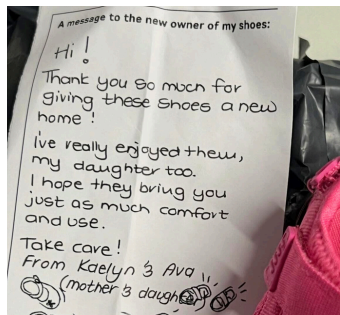 A message to the new owner of my shoes:
Hi!
Thank you so much for
giving these shoes a new
home!
I've really enjoyed them,
my daughter too.
I hope they bring you
just as much comfort
and use.
Take care!
From Kaelyn & Ava
(mother & daugh